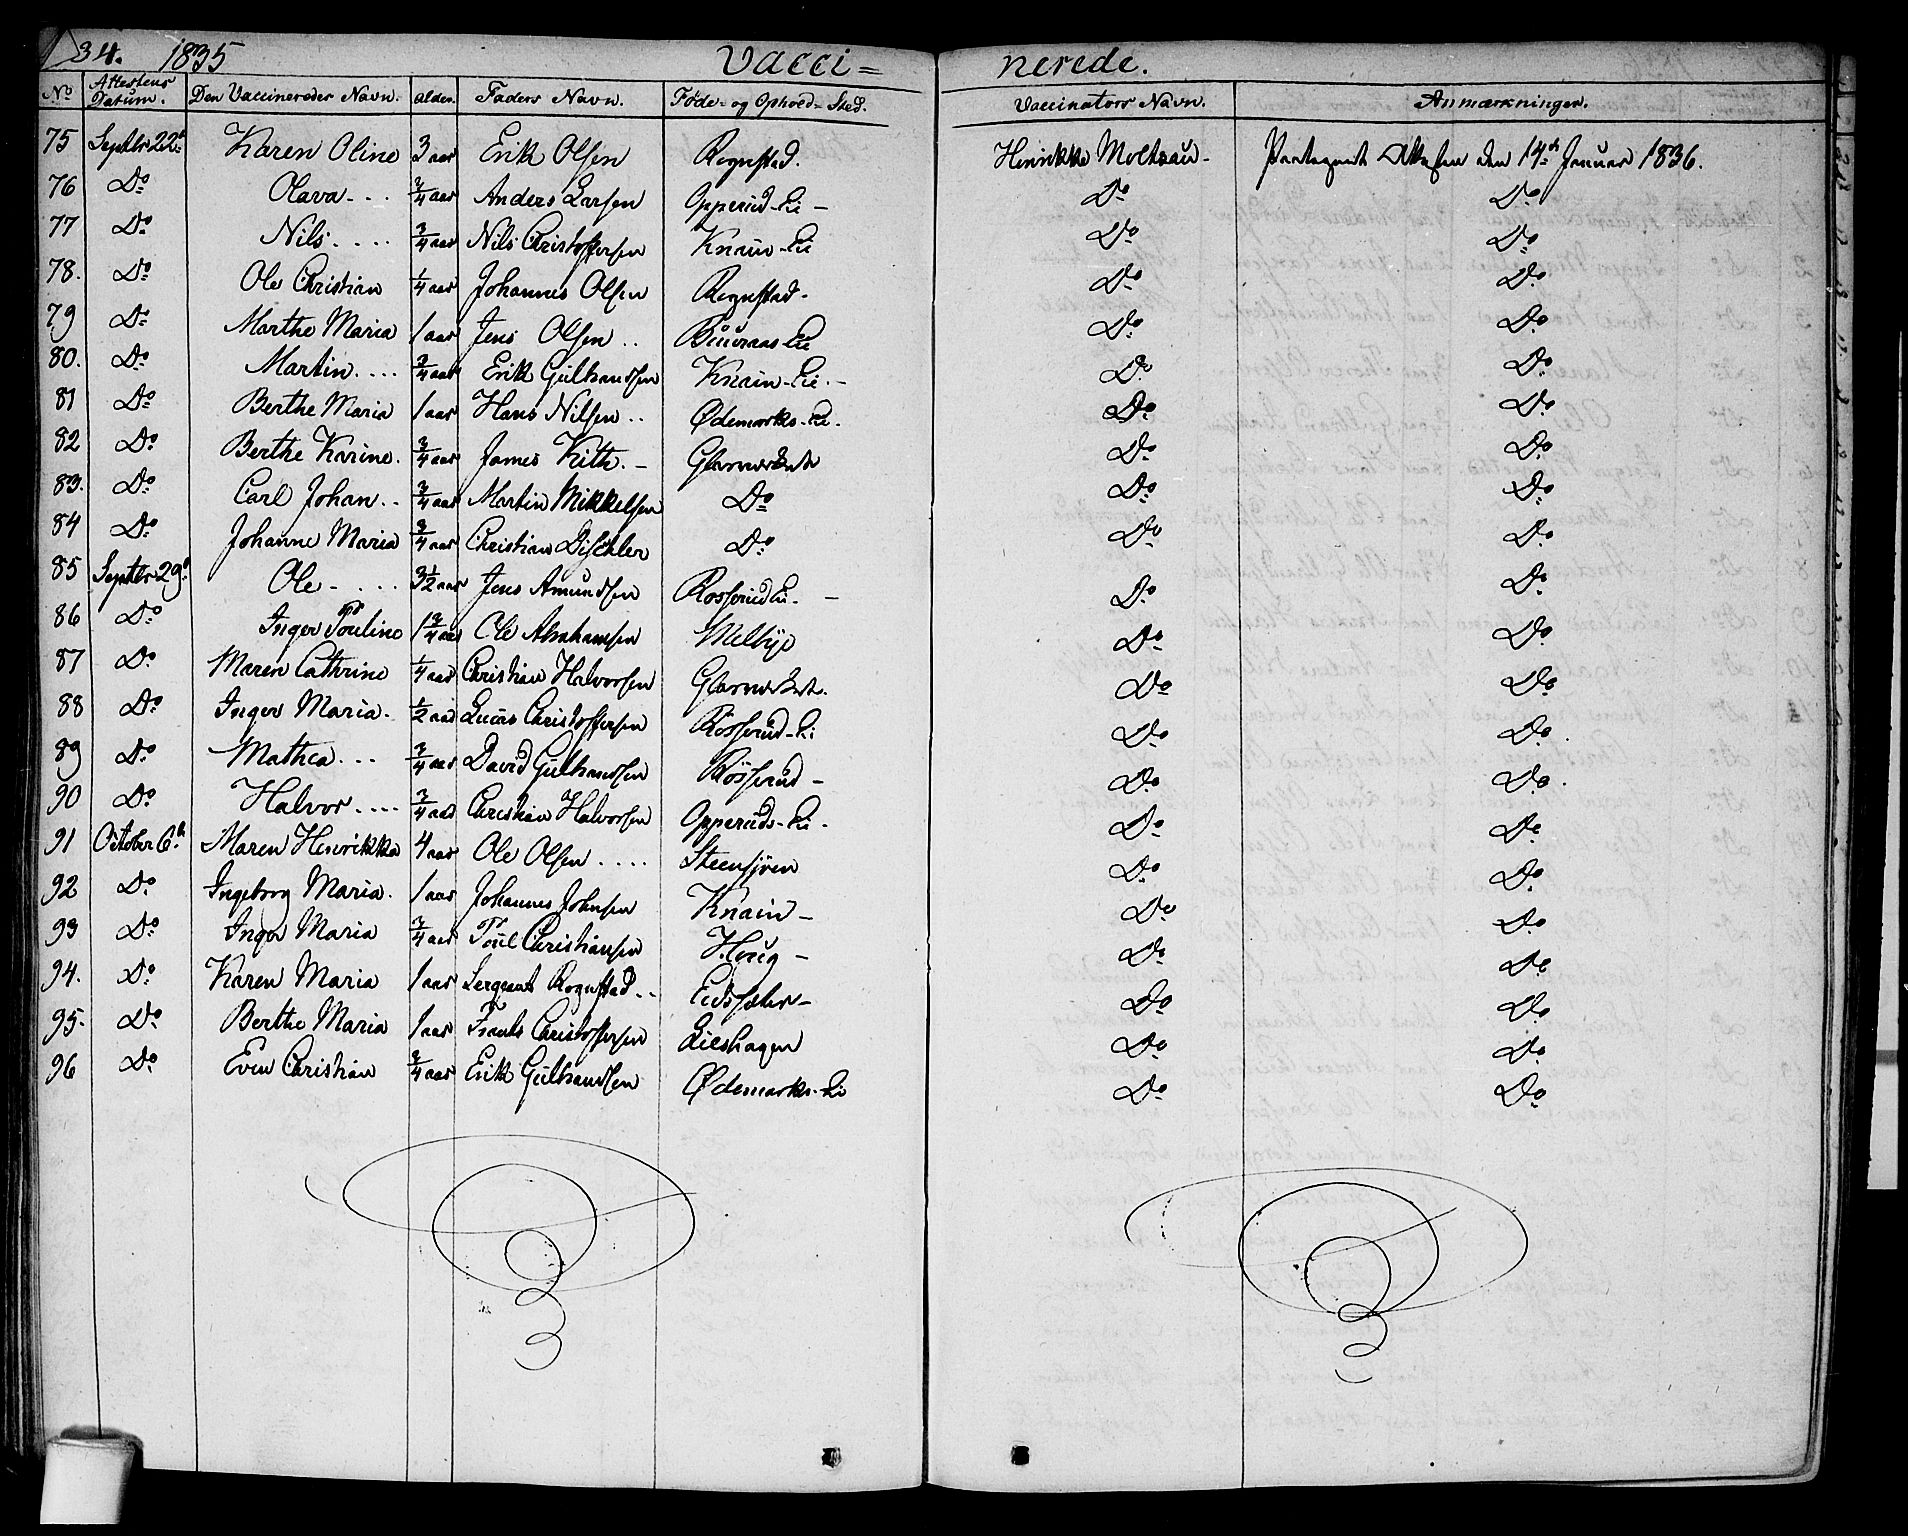 34. 1835 Vacci= nerede.
No Attestens Datum. Den Vaccineredes Navn. Alder. Faders Navn. Føde- og Ophold-Sted. Vaccinators Navn. Anmærkninger.
75 Septbr 22d Karen Oline 3 aar Erik Olsen Rognstad. Henrikke Moltzau- den 14de Januar 1836.
76 Do Olava- 3/4 aar Anders Larsen Opperud-Eie - Do Do
77 Do Nils 3/4 aar Nils Christoffersen Knain-Eie Do Do
78. Do Ole Christian 1/4 aar Johannes Olsen Rognstad- Do Do
79 Do Marthe Maria 1 aar Jens Olsen Do Do
80. Do Martin 3/4 aar Erik Gulbrandsen Knain-Eie.- Do Do
81 Do Berthe Maria 1 aar Hans Nilsen Ødemarks-Ei. Do Do
82 Do Berthe Karine. 3/4 aar James Kith.- Glasværket Do Do
83. Do Carl Johan 3/4 aar Martin Mikkelsen Do Do Do
84 Do Johanne Maria 3/4 aar Christian Dischler Do Do Do
85 Septbr 29d Ole 3 1/2 aar Jens Amundsen Rosserud Ei.- Do Do
86 Do Inger Pouline 1 3/4 aar Ole Abrahamsen Melbye Do Do
87 Do Maren Cathrine 1/4 aar Christian Halvorsen Glasværket. Do Do
88 Do Inger Maria. 1/2 aar Lucas Christoffersen Rosserud-Ei Do Do
89 Do Mathea 3/4 aar David Gulbrandsen Rosserud- Do Do
90 Do Halvor 3/4 aar Christian Halvorsen Opperuds-Ei. Do Do
91 October 6th Maren Henrikka 4 aar Ole Olsen Steensjøen Do Do
92 Do Ingeborg Maria. 1 aar Johannes Johnsen Knain- Do Do
93 Do Inger Maria 3/4 aar Poul Christiansen Houg- Do Do
94. Do Karen Maria 1 aar Sergeant Rognstad Do Do
95. Do Berthe Maria 1 aar Frants Christoffersen Lieshagen Do Do
96 Do Even Christian 3/4 aar Erik Gulbrandsen Ødemarks-Ei Do Do